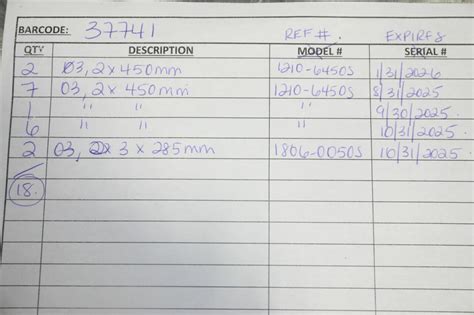 BARCODE: 37741 REF #. EXPIRES
QTY DESCRIPTION MODEL # SERIAL #
2 03, 2 x 450mm 1210-6450S 1/31/2026
7 03, 2 x 450mm 1210-6450S 8/31/2025
1 " " " 9/30/2025
6 " " " 10/31/2025
2 03, 2x 3 x 285mm 1806-0050S 10/31/2025
18.